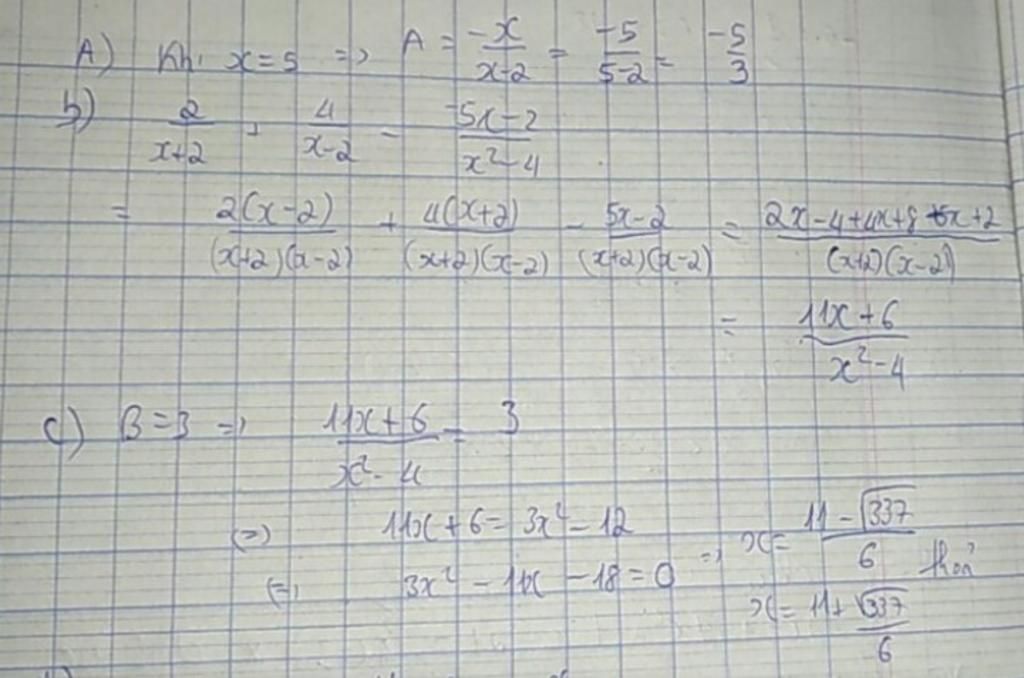 A) Khi x = 5 => A = -x/(x-2) = -5/(5-2) = -5/3
b) 2/(x+2) + 4/(x-2) - (-5x-2)/(x²-4)
= 2(x-2)/((x+2)(x-2)) + 4(x+2)/((x+2)(x-2)) - (5x-2)/((x+2)(x-2)) = (2x-4+4x+8+5x+2)/((x+2)(x-2))
= (11x+6)/(x²-4)
c) B=3 => (11x+6)/(x²-4) = 3
(=) 11x+6 = 3x²-12
(=) 3x² - 11x - 18 = 0 => x = (11-√337)/6 thoả
x = (11+√337)/6